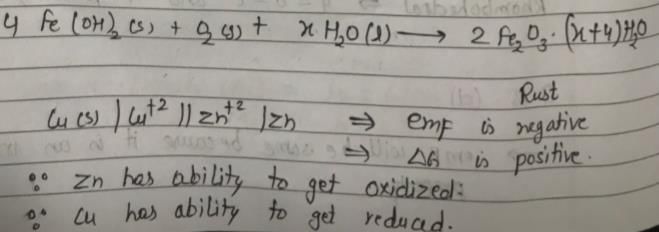 4 Fe(OH)₂(s) + O₂(g) + xH₂O(l) → 2 Fe₂O₃·(x+4)H₂O
Rust
Cu(s) | Cu⁺² || Zn⁺² | Zn ⇒ emf is negative
⇒ ΔG is positive.
∵ Zn has ability to get oxidized:
∵ Cu has ability to get reduced.